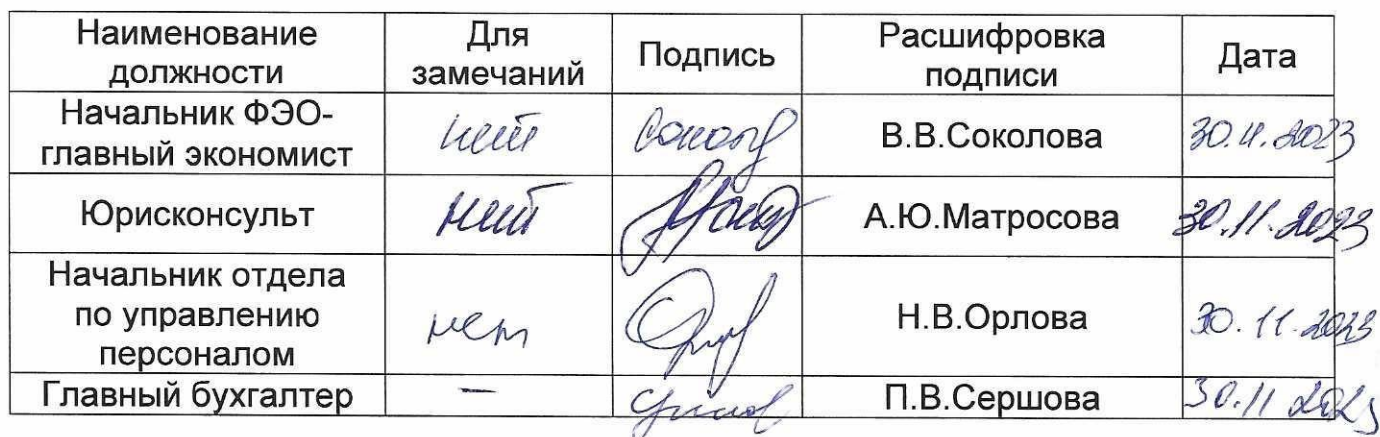 Наименование должности Для замечаний Подпись Расшифровка подписи Дата
Начальник ФЭО-главный экономист нет В.В.Соколова 30.11.2023
Юрисконсульт нет А.Ю.Матросова 30.11.2023
Начальник отдела по управлению персоналом нет Н.В.Орлова 30.11.2023
Главный бухгалтер — П.В.Сершова 30.11 2023